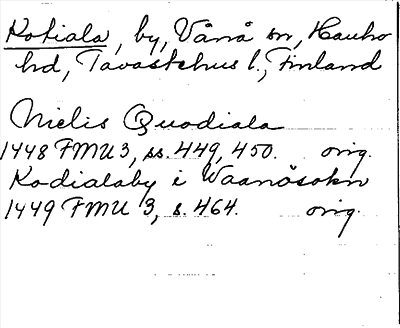 Kotiala, by, Vånå sn, Hauho
hd, Tavastehus l., Finland
Nielis Quodiala
1448 FMU 3, ss. 449, 450. orig.
Kodialaby i Waanösokn
1449 FMU 3, s. 464. orig.